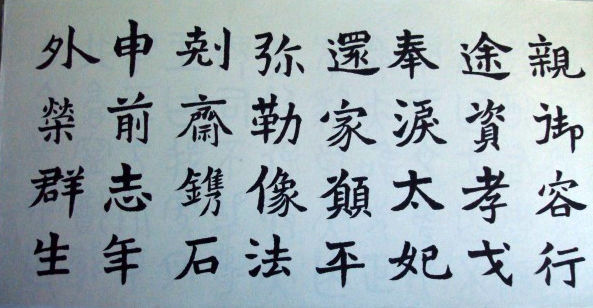 親御容行
途資孝戈
奉淚太妃
還家願平
弥勒像法
剋齋鐫石
申前志年
外榮群生